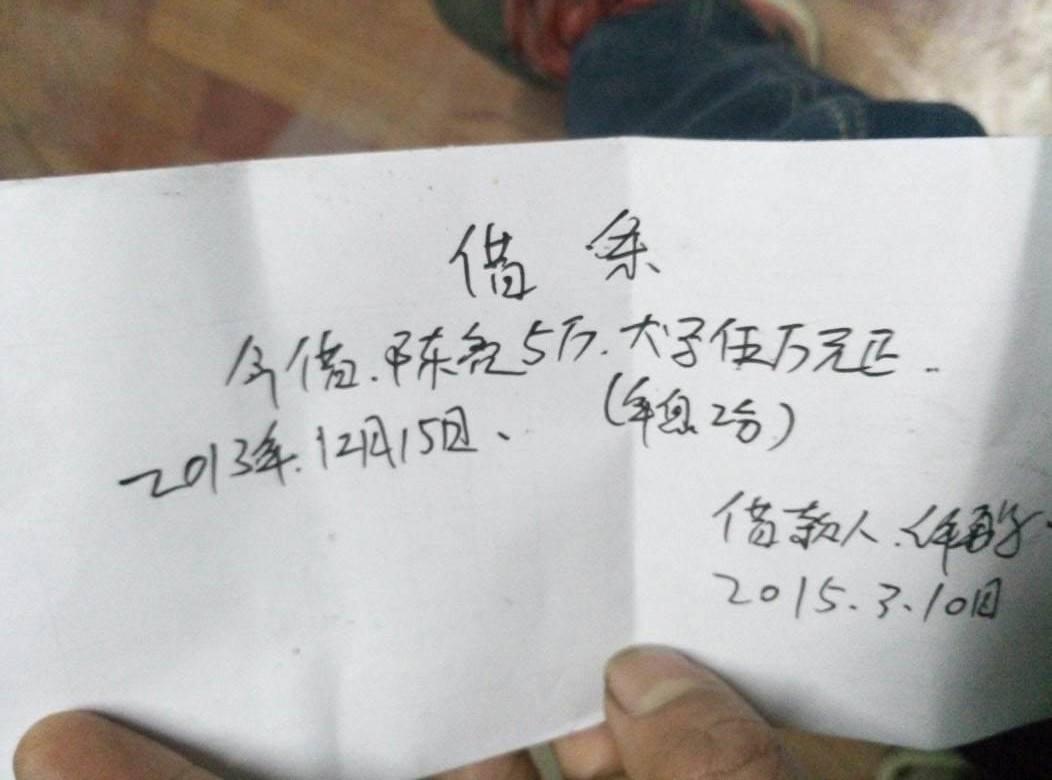 借条
今借.陈亮5万.大字伍万元正..
2013年.12月15日、(年息2分)
借款人.
2015.3.10日